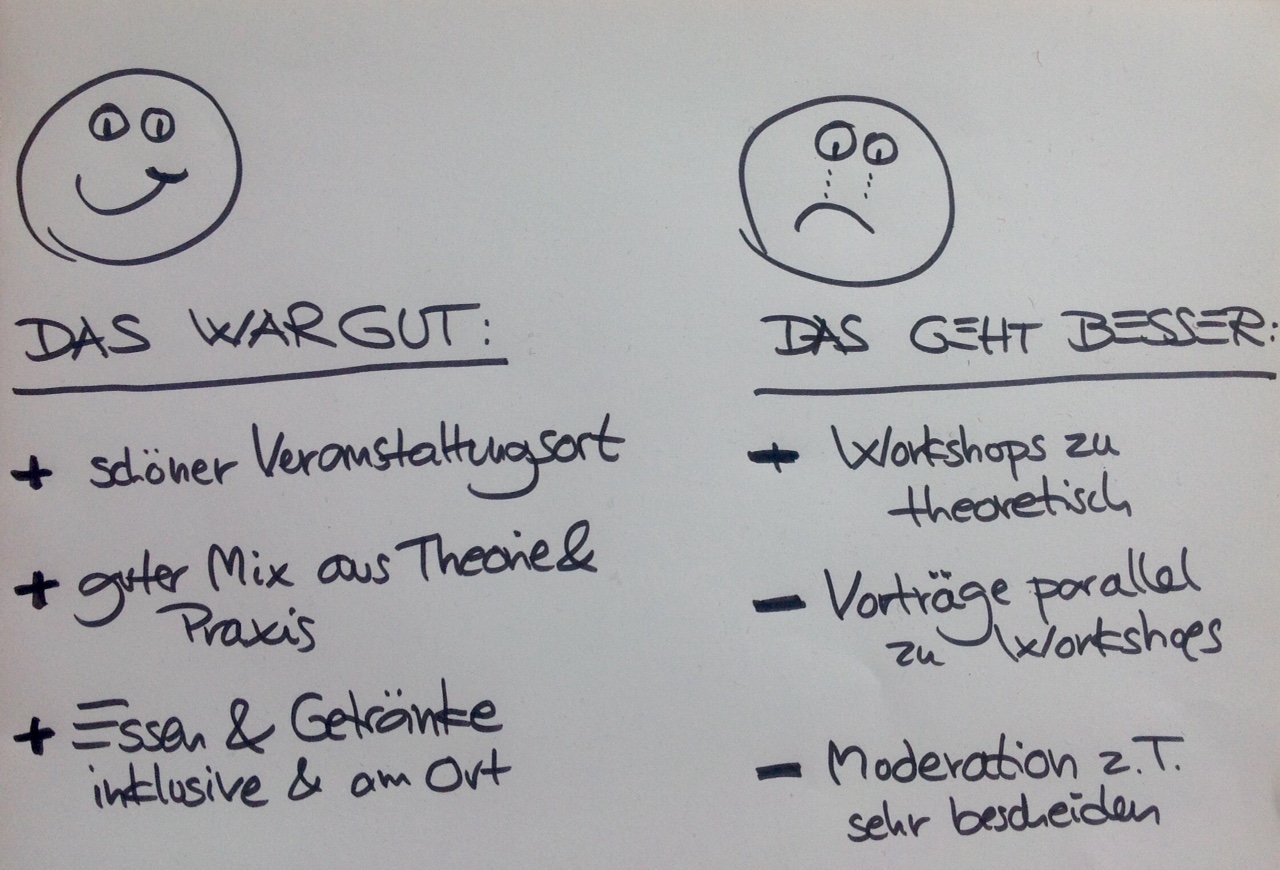 DAS WAR GUT:
+ schöner Veranstaltungsort
+ guter Mix aus Theorie &
Praxis
+ Essen & Getränke
inklusive & am Ort
DAS GEHT BESSER:
+ Workshops zu
theoretisch
- Vorträge parallel
zu Workshops
- Moderation z.T.
sehr bescheiden